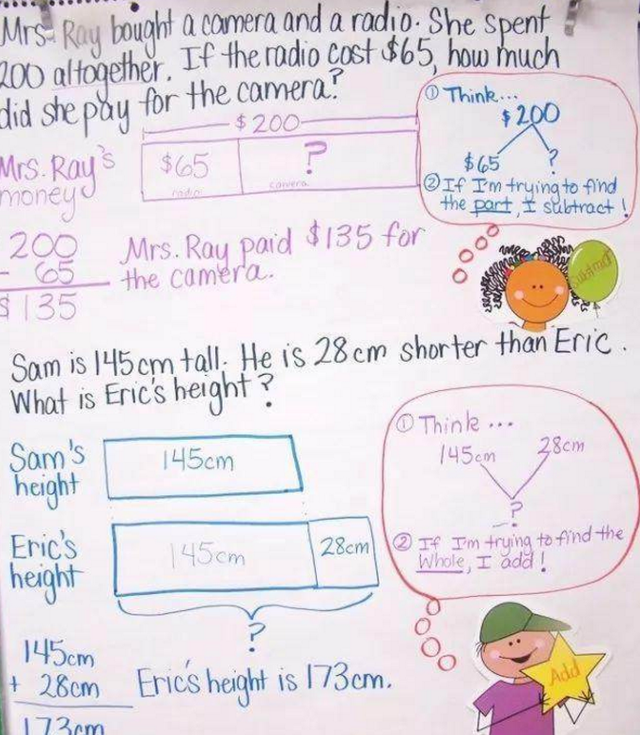 Mrs. Ray bought a camera and a radio. She spent
200 altogether. If the radio cost $65, how much
did she pay for the camera?
① Think...
$200
$65 ?
② If I'm trying to find
the part, I subtract!
$200
Mrs. Ray's
money
$65 ?
radio camera
200
- 65
$135
Mrs. Ray paid $135 for
the camera.
Subtract
Sam is 145cm tall. He is 28cm shorter than Eric.
What is Eric's height?
① Think...
145cm 28cm
?
② If I'm trying to find the
Whole, I add!
Sam's
height
145cm
Eric's
height
145cm 28cm
?
145cm
+ 28cm
173cm
Eric's height is 173cm.
Add